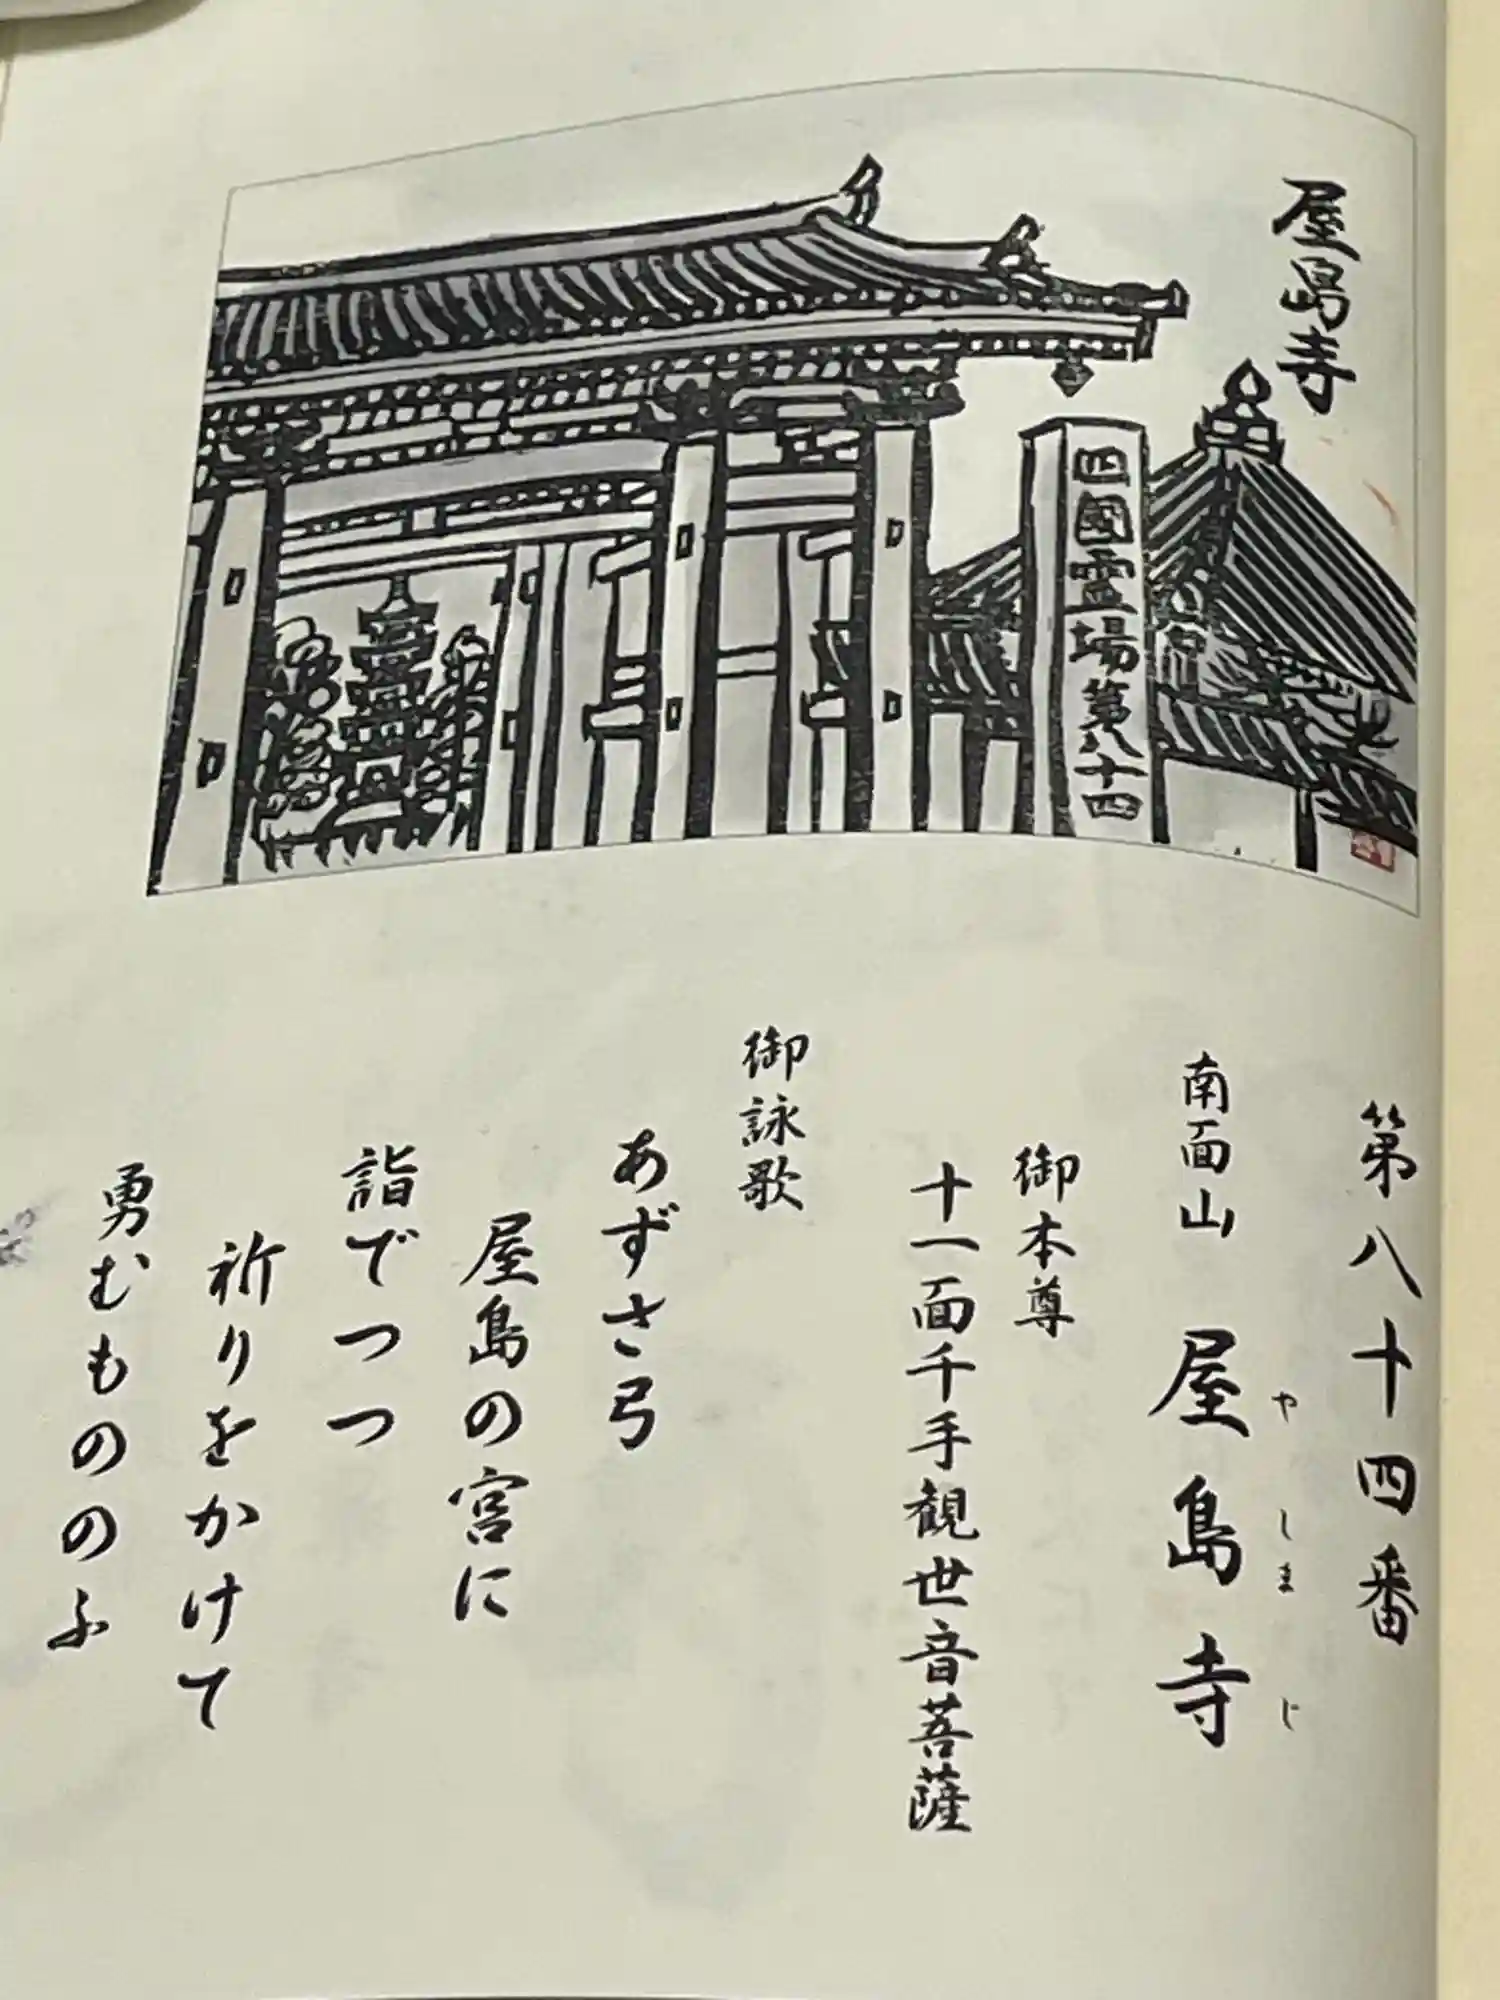 屋島寺
四国霊場第八十四
第八十四番
南面山 屋島寺
やしまじ
御本尊
十一面千手観世音菩薩
御詠歌
あずさ弓
屋島の宮に
詣でつつ
祈りをかけて
勇むもののふ